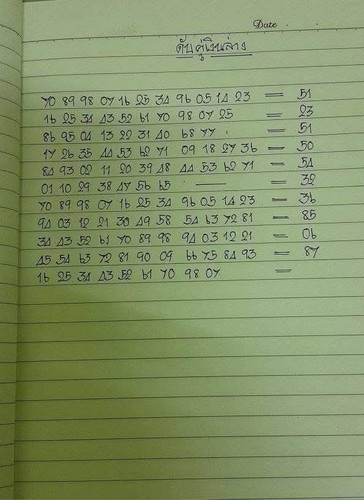 Date
ดับคู่เงินล่าง
70 89 98 07 16 25 34 96 05 14 23 = 51
16 25 34 43 52 61 70 98 07 25 = 23
86 95 04 13 22 31 40 68 77 = 51
17 26 35 44 53 62 71 09 18 27 36 = 50
84 93 02 11 20 39 48 44 53 62 71 = 54
01 10 29 38 47 56 65 — = 32
70 89 98 07 16 25 34 96 05 14 23 = 36
94 03 12 21 30 49 58 54 63 72 81 = 85
34 43 52 61 70 89 98 94 03 12 21 = 06
45 54 63 72 81 90 09 66 75 84 93 = 87
16 25 34 43 52 61 70 98 07 =